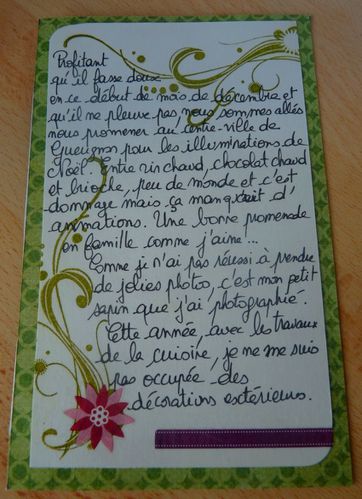 Profitant
qu'il fasse doux
en ce début de mois de décembre et
qu'il ne pleuve pas, nous sommes allés
nous promener au centre-ville de
Gueugnon pour les illuminations de
Noël. Entre vin chaud, chocolat chaud
et brioche, peu de monde et c'est
dommage mais ça manquait d'
animations. Une bonne promenade
en famille comme j'aime...
Comme je n'ai pas réussi à prendre
de jolies photo, c'est mon petit
sapin que j'ai photographié.
Cette année, avec les travaux
de la cuisine, je ne me suis
pas occupée des
décorations extérieures.